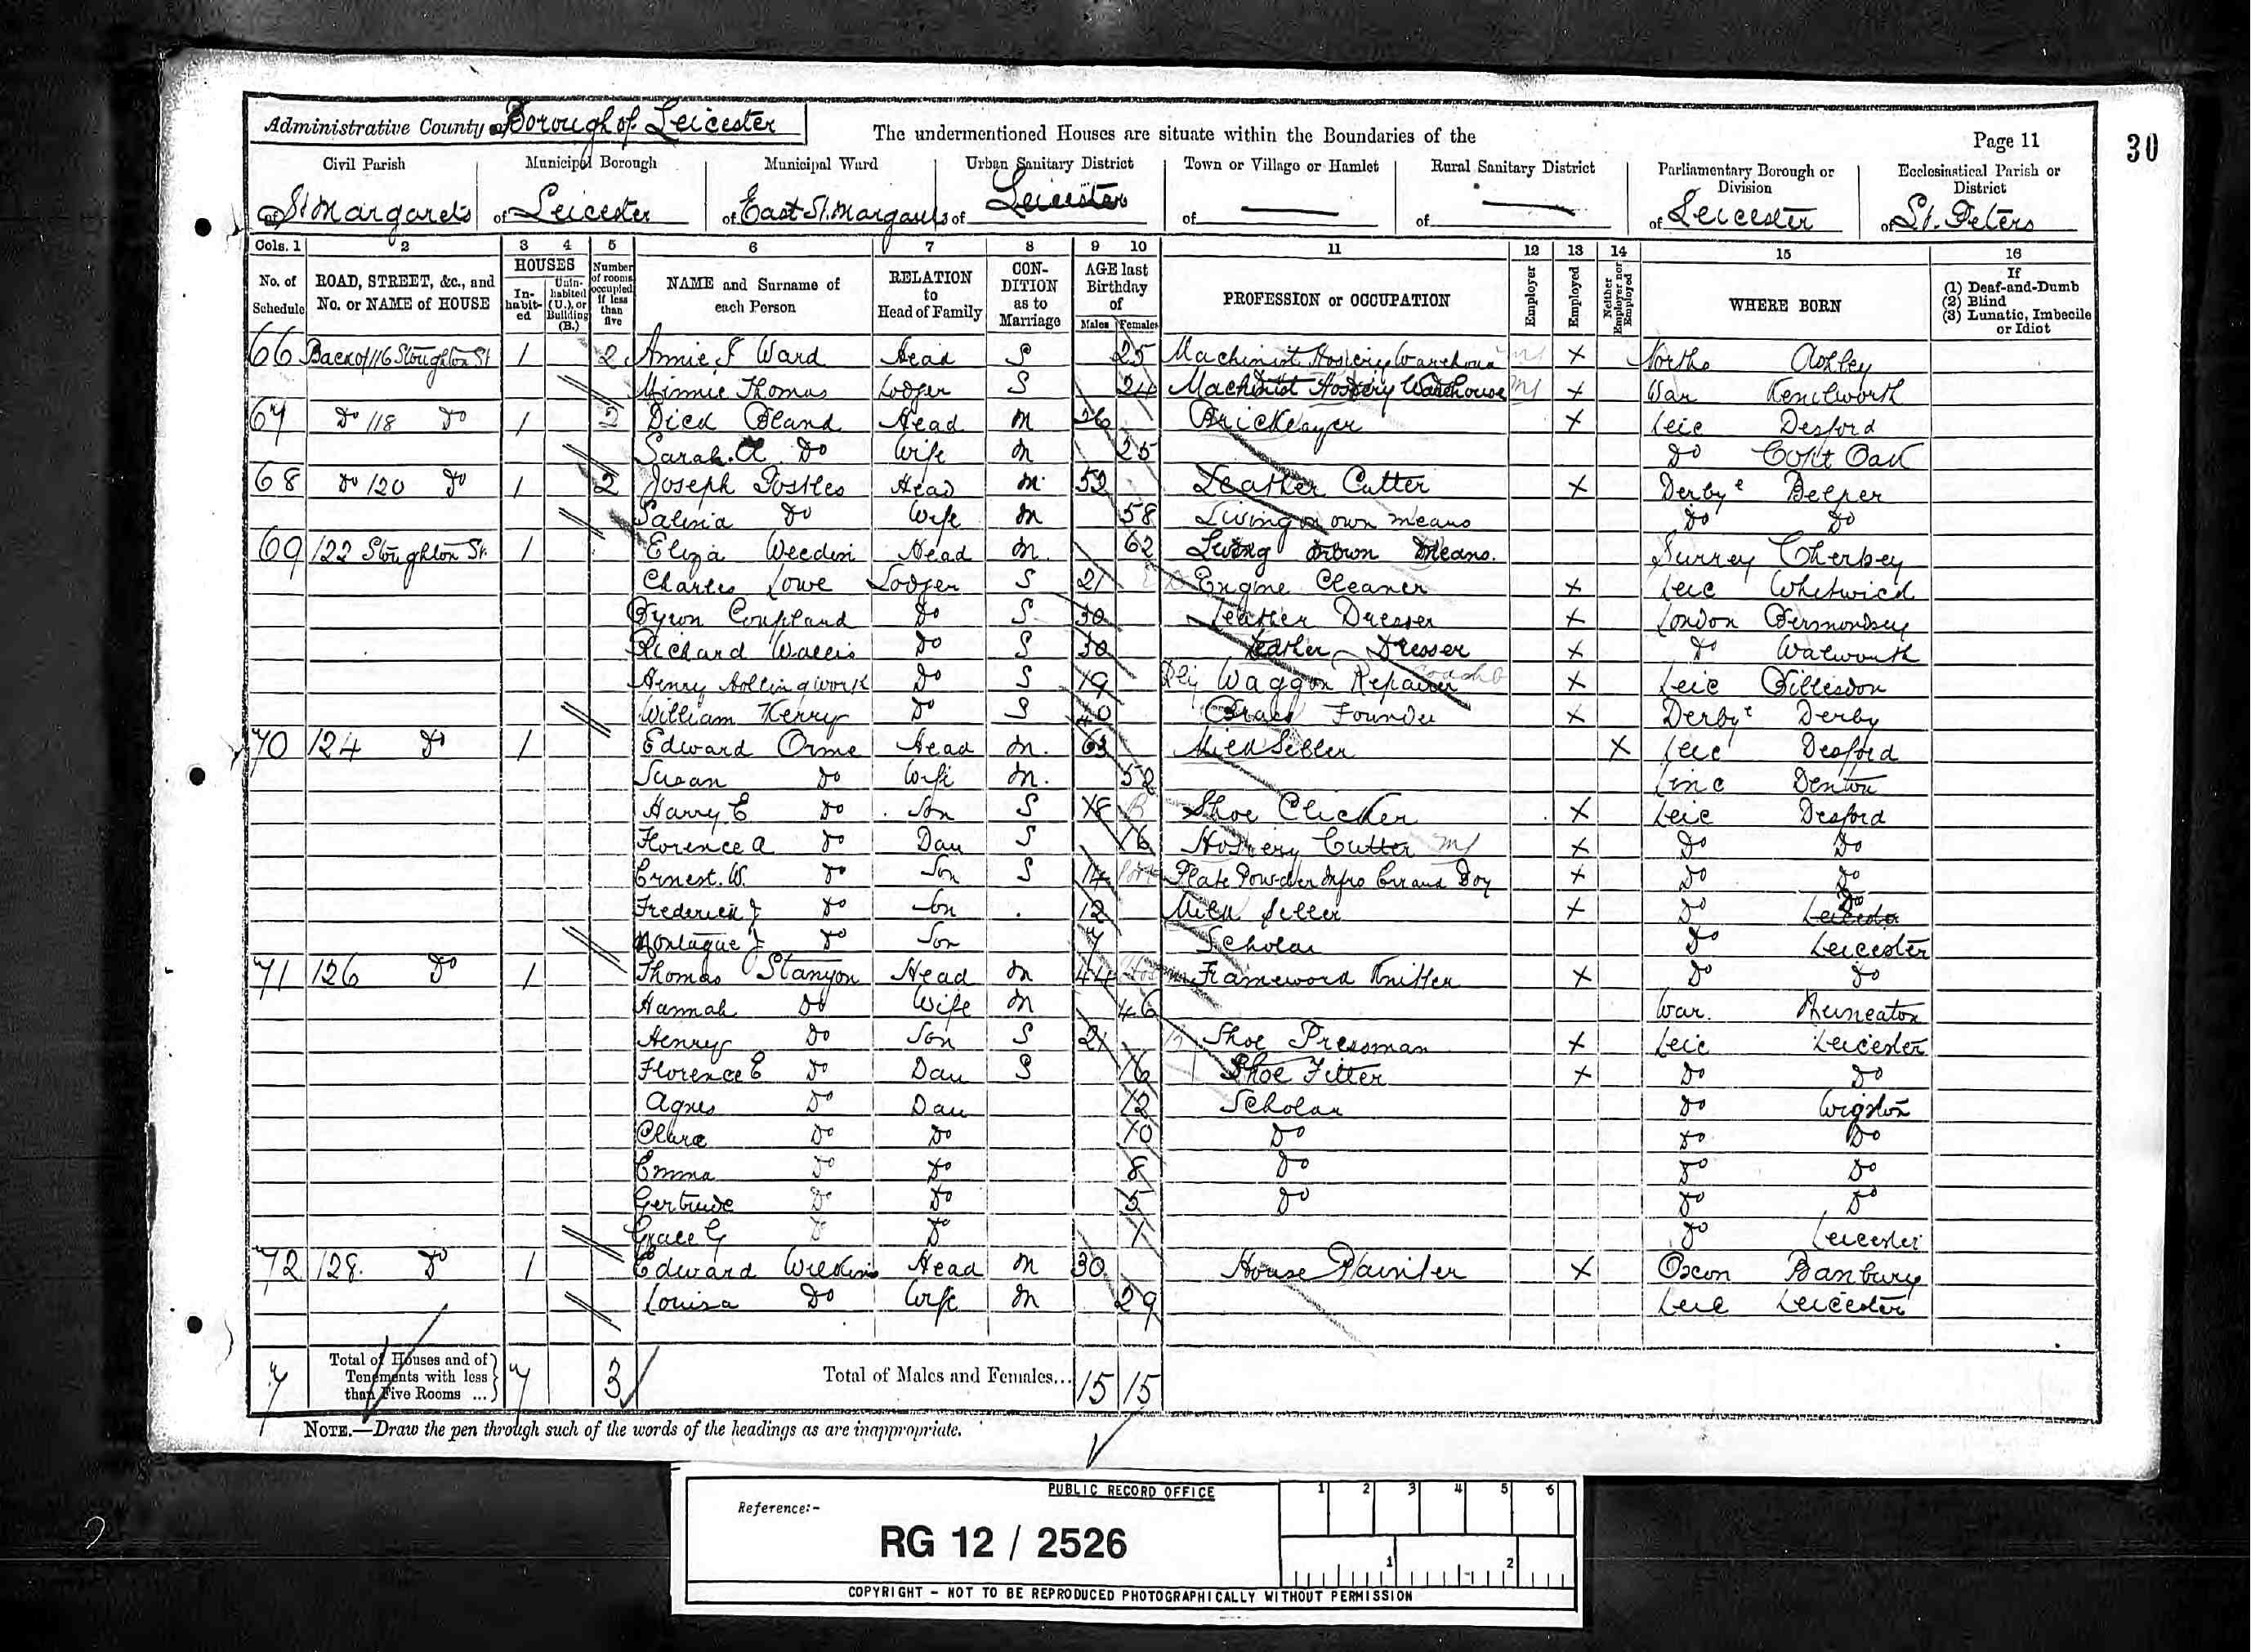 Administrative County of Borough of Leicester
The undermentioned Houses are situate within the Boundaries of the
Page 11
30
Civil Parish Municipal Borough Municipal Ward Urban Sanitary District Town or Village or Hamlet Rural Sanitary District Parliamentary Borough or Division Ecclesiastical Parish or District
of St Margarets of Leicester of East St. Margarets of Leicester of — of — of Leicester of St. Peters
Cols. 1 2 3 4 5 6 7 8 9 10 11 12 13 14 15 16
No. of Schedule ROAD, STREET, &c., and No. or NAME of HOUSE HOUSES Inhabited Uninhabited (U.), or Building (B.) Number of rooms occupied if less than five NAME and Surname of each Person RELATION to Head of Family CONDITION as to Marriage AGE last Birthday of Males Females PROFESSION or OCCUPATION Employer Employed Neither Employer nor Employed WHERE BORN If (1) Deaf-and-Dumb (2) Blind (3) Lunatic, Imbecile or Idiot
66 Back of 116 Stoughton St 1 2 Annie F Ward Head S 25 Machinist Hosiery Warehouse X Northo Ashley
Minnie Thomas Lodger S 24 Machinist Hosiery Warehouse X War Kenilworth
67 Do 118 Do 1 2 Dick Bland Head M 26 Bricklayer X Leic Desford
Sarah. A Do Wife M 25 Do Copt Oak
68 Do 120 Do 1 2 Joseph Head M 52 Leather Cutter X Derby Belper
Salina Do Wife M 58 Living on own means Do Do
69 122 Stoughton St. 1 Eliza Weedin Head M 62 Living on own Means. Surrey Chertsey
Charles Lowe Lodger S 21 Engine Cleaner X Leic Whitwick
Byron Coupland Do S 30 Leather Dresser X London Bermondsey
Richard Wallis Do S 30 Leather Dresser X Do Walworth
Henry Hollingwork Do S 19 Rly Waggon Repairer X Leic Billesdon
William Kerry Do S 40 Brass Founder X Derby Derby
70 124 Do 1 Edward Orme Head M. 63 Milk Seller X Leic Desford
Susan Do Wife M. 52 Linc Denton
Harry E Do Son S 18 Shoe Clicker X Leic Desford
Florence A Do Dau S 16 Hosiery Cutter X Do Do
Ernest. W. Do Son S 14 Plate Powder Mfro Errand Boy X Do Do
Frederick J Do Son 12 Milk Seller X Do Do Leicester
Montague J Do Son 7 Scholar Do Leicester
71 126 Do 1 Thomas Stanyon Head M 44 Framework Knitter X Do Do
Hannah Do Wife M 46 War. Nuneaton
Henry Do Son S 21 Shoe Pressman X Leic Leicester
Florence E Do Dau S 16 Shoe Fitter X Do Do
Agnes Do Dau 12 Scholar Do Wigston
Clara Do Do 10 Do Do Do
Emma Do Do 8 Do Do Do
Gertrude Do Do 5 Do Do Do
Grace G Do Do 1 Do Leicester
72 128. Do 1 Edward Wilkins Head M 30 House Painter X Oxon Banbury
Louisa Do Wife M 29 Leic Leicester
7 Total of Houses and of Tenements with less than Five Rooms ... 7 3 Total of Males and Females... 15 15
NOTE.—Draw the pen through such of the words of the headings as are inappropriate.
PUBLIC RECORD OFFICE
1 2 3 4 5 6
Reference:-
RG 12 / 2526
1 2
COPYRIGHT - NOT TO BE REPRODUCED PHOTOGRAPHICALLY WITHOUT PERMISSION